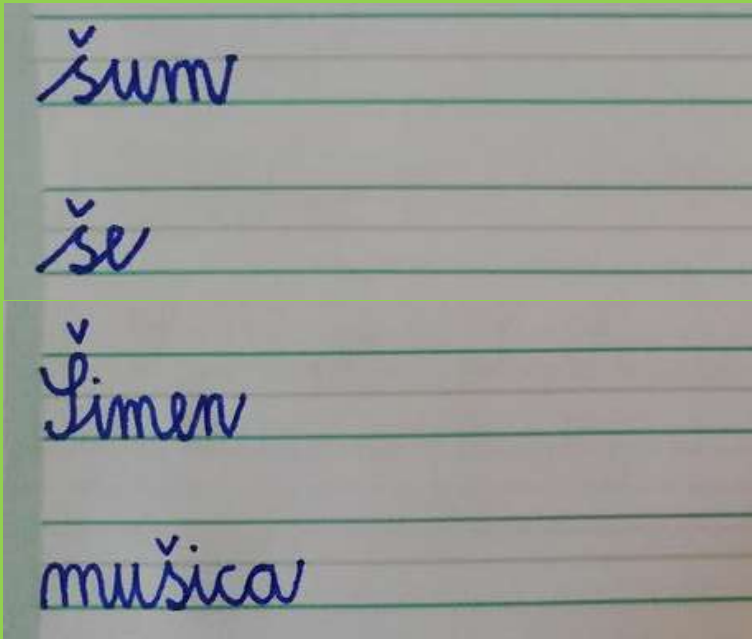 šum
še
Šimen
mušica